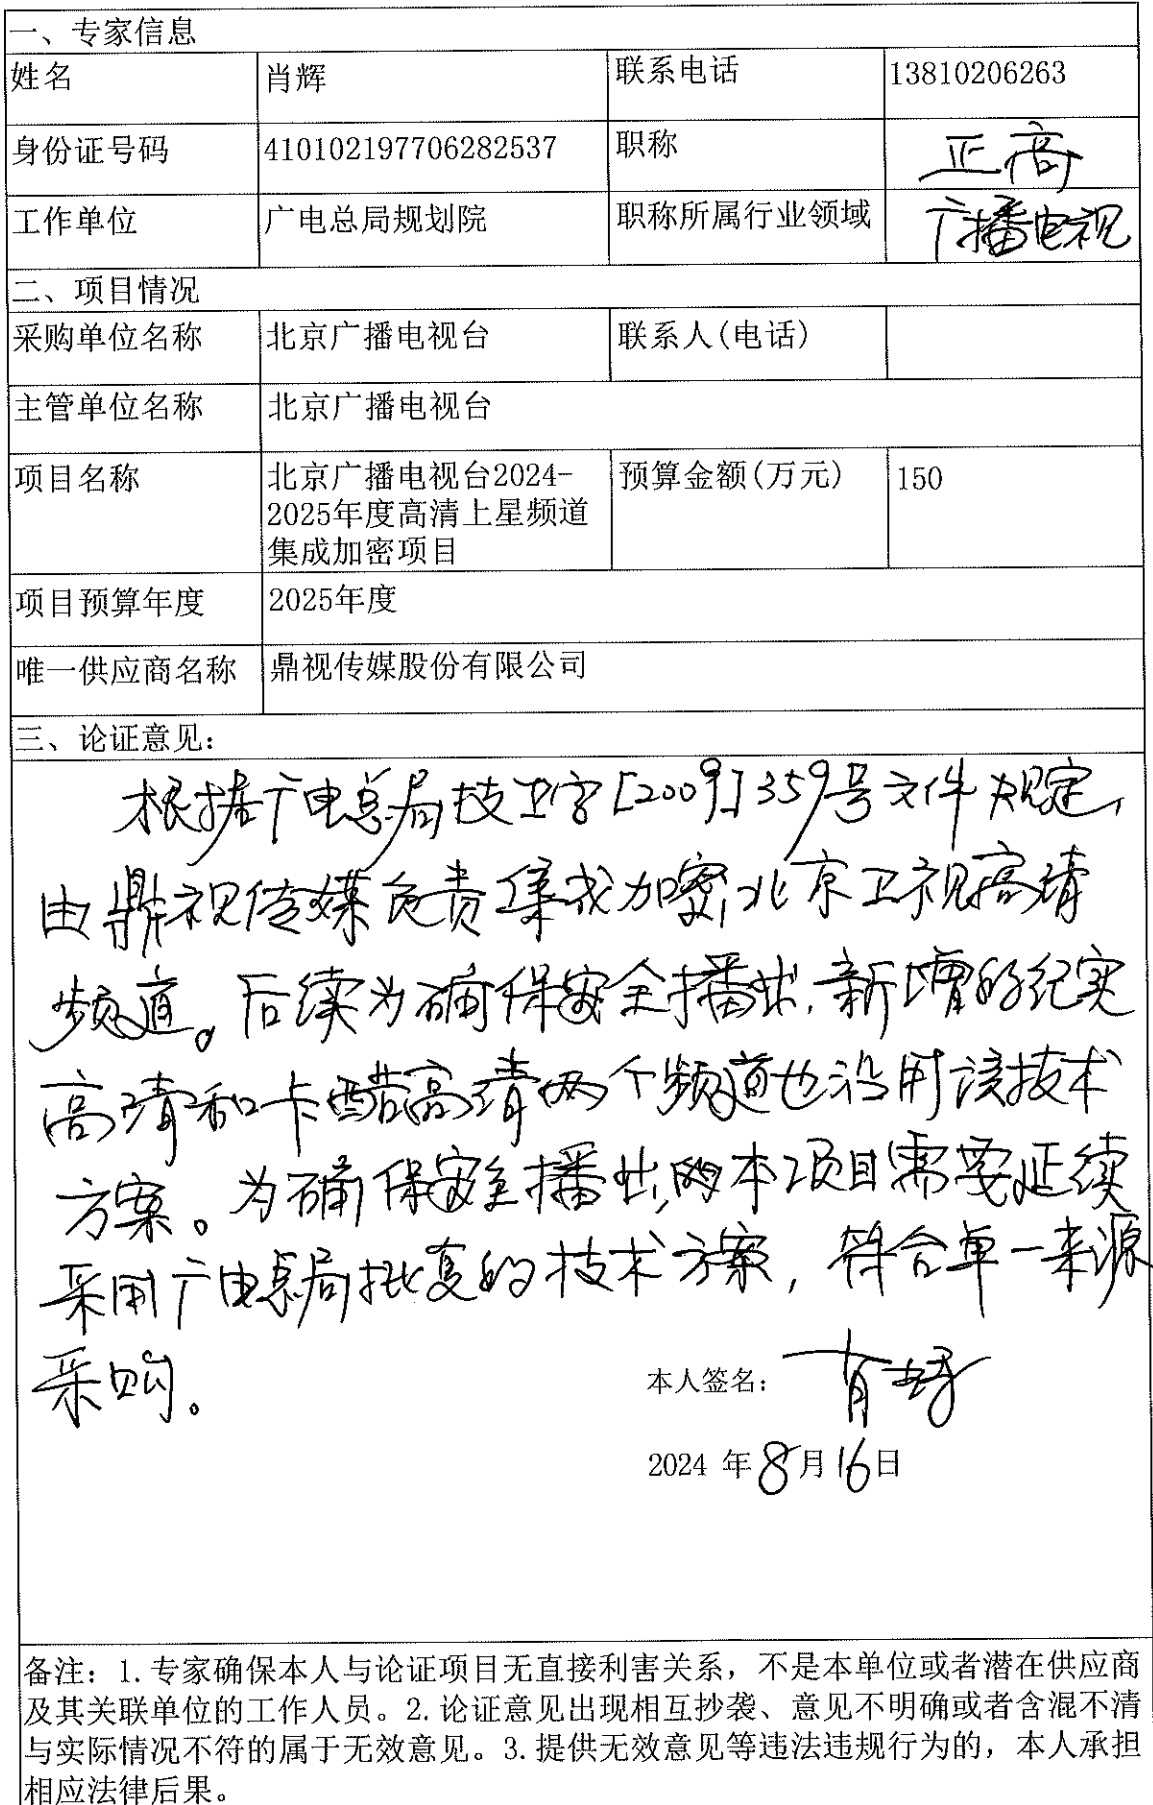 一、专家信息
姓名 肖辉 联系电话 13810206263
身份证号码 410102197706282537 职称 正高
工作单位 广电总局规划院 职称所属行业领域 广播电视
二、项目情况
采购单位名称 北京广播电视台 联系人(电话)
主管单位名称 北京广播电视台
项目名称 北京广播电视台2024-
2025年度高清上星频道
集成加密项目 预算金额(万元) 150
项目预算年度 2025年度
唯一供应商名称 鼎视传媒股份有限公司
三、论证意见：
根据广电总局技卫字[2009]359号文件规定,
由鼎视传媒负责集成加密北京卫视高清
频道。后续为确保安全播出,新增的纪实
高清和卡酷高清两个频道也沿用该技术
方案。为确保安全播出,本项目需要延续
采用广电总局批复的技术方案,符合单一来源
采购。
本人签名： 肖辉
2024 年 8月16日
备注：1.专家确保本人与论证项目无直接利害关系，不是本单位或者潜在供应商
及其关联单位的工作人员。2.论证意见出现相互抄袭、意见不明确或者含混不清
与实际情况不符的属于无效意见。3.提供无效意见等违法违规行为的，本人承担
相应法律后果。